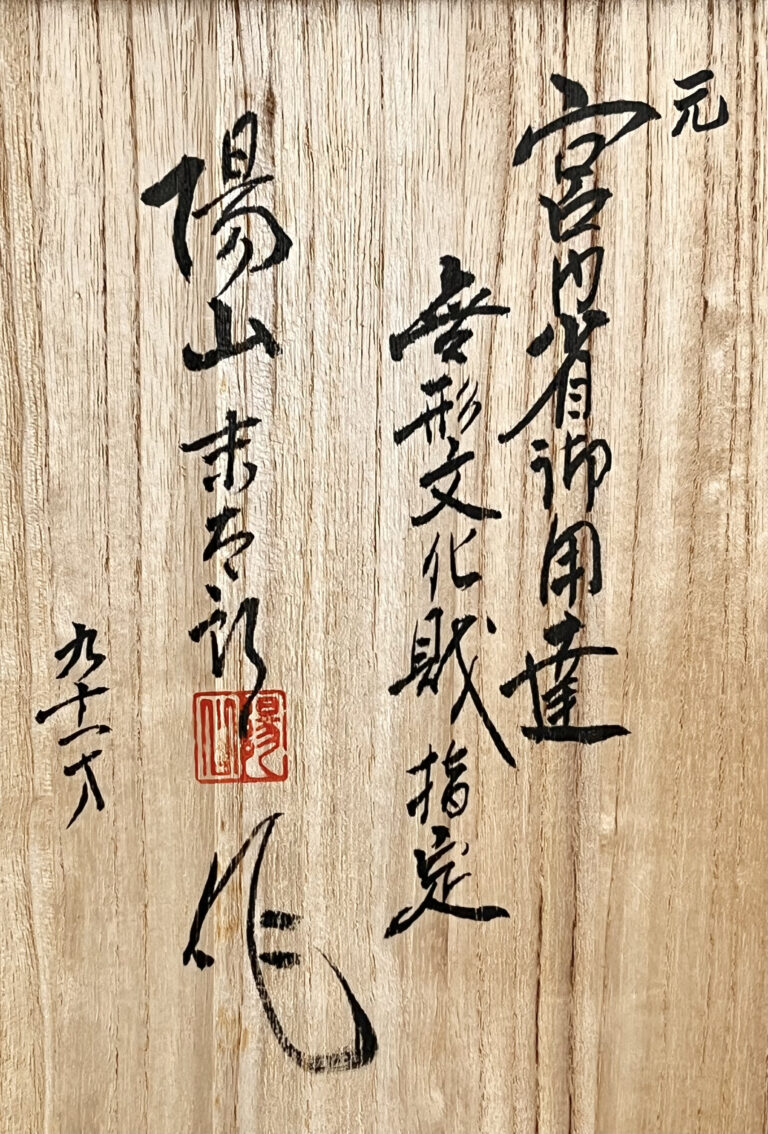 元
宮内省御用達
無形文化財指定
陽山末太郎
作
九十一才
陽山